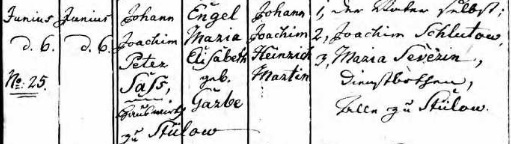 Junius Junius Johann Engel Johann 1, der Vater selbst;
d. 6. d. 6. Joachim Maria Joachim 2, Joachim Schlutow,
Peter Elisabeth Heinrich 3, Maria Severin,
No. 25. Saß, geb. Martin Dienstbothen,
Hauswirth Garbe alle zu Stülow.
zu Stülow